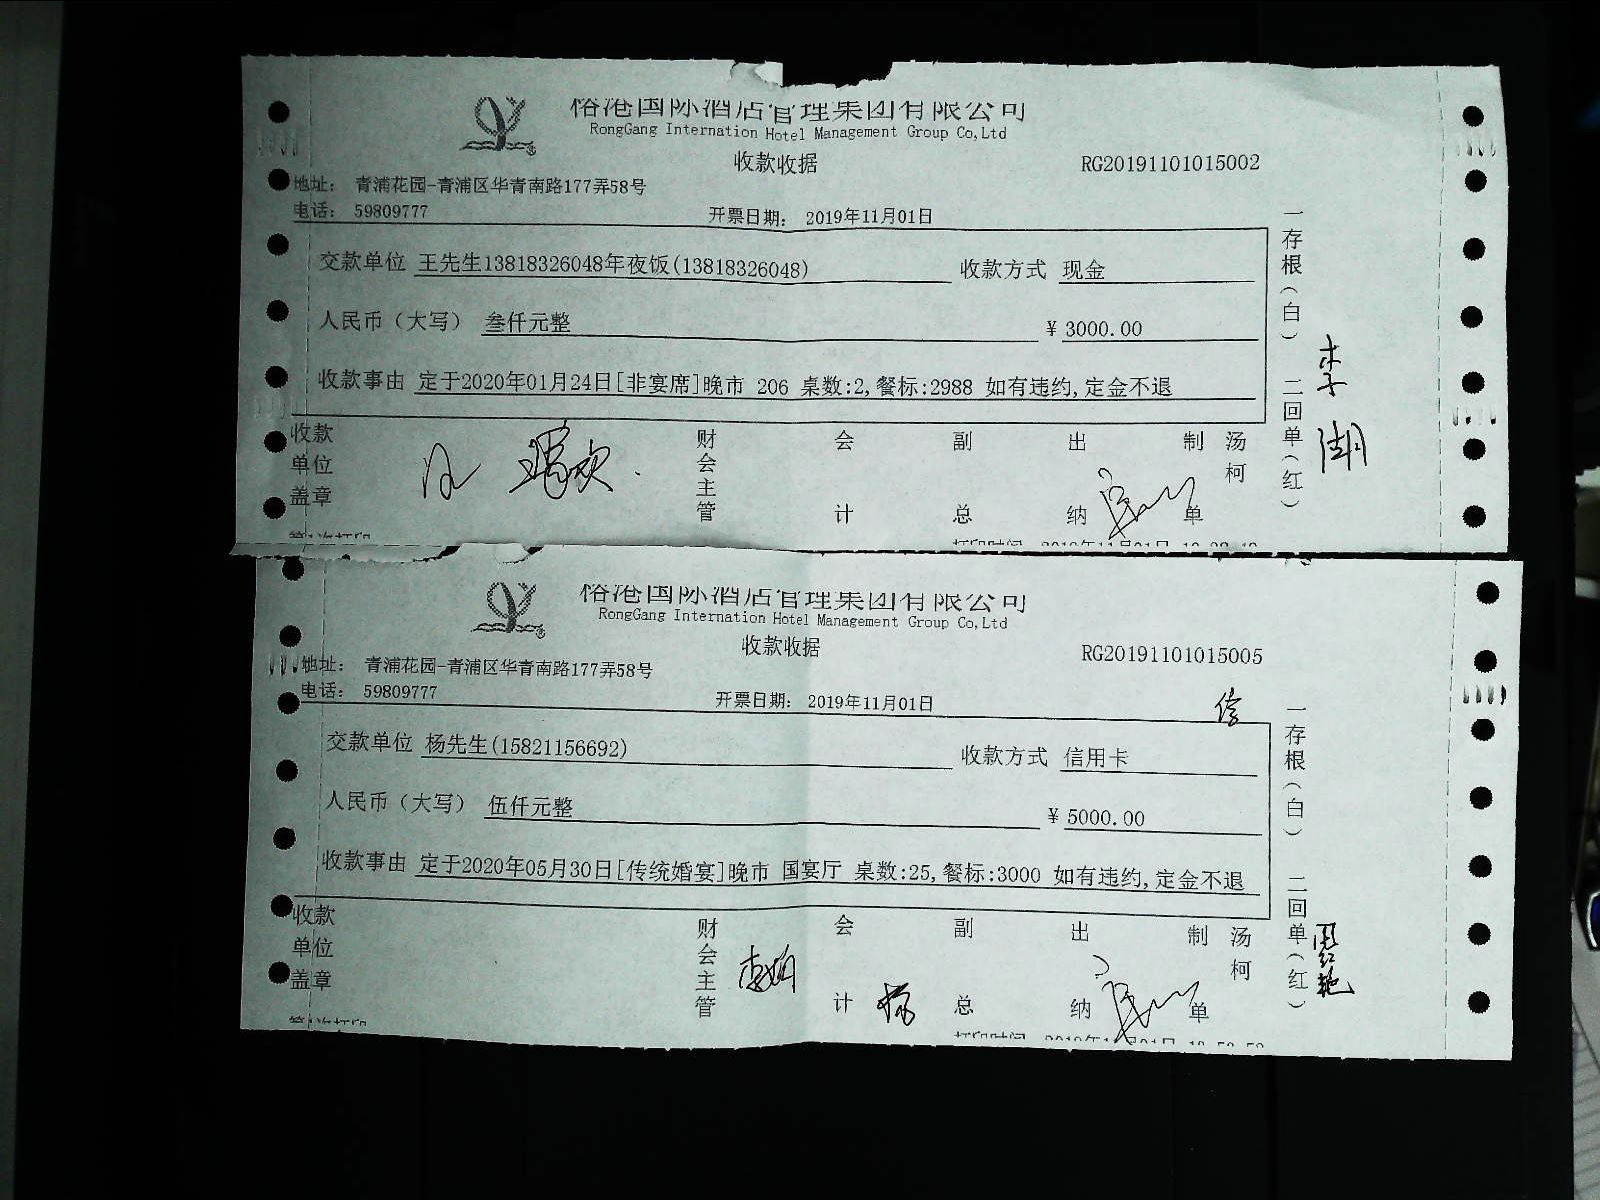 榕港国际酒店管理集团有限公司
RongGang Internation Hotel Management Group Co,Ltd
收款收据 RG20191101015002
地址： 青浦花园-青浦区华青南路177弄58号
电话： 59809777 开票日期： 2019年11月01日
交款单位 王先生13818326048年夜饭(13818326048) 收款方式 现金
人民币（大写） 叁仟元整 ￥ 3000.00
收款事由 定于2020年01月24日[非宴席]晚市 206 桌数:2,餐标:2988 如有违约,定金不退
收款单位盖章 财会主管 会计 副总 出纳 制单 汤柯
一存根(白) 二回单(红)
第1次打印 打印时间 2019年11月01日
榕港国际酒店管理集团有限公司
RongGang Internation Hotel Management Group Co,Ltd
收款收据 RG20191101015005
地址： 青浦花园-青浦区华青南路177弄58号
电话： 59809777 开票日期： 2019年11月01日
交款单位 杨先生(15821156692) 收款方式 信用卡
人民币（大写） 伍仟元整 ￥ 5000.00
收款事由 定于2020年05月30日[传统婚宴]晚市 国宴厅 桌数:25,餐标:3000 如有违约,定金不退
收款单位盖章 财会主管 会计 副总 出纳 制单 汤柯
一存根(白) 二回单(红)
第1次打印 打印时间 2019年11月01日